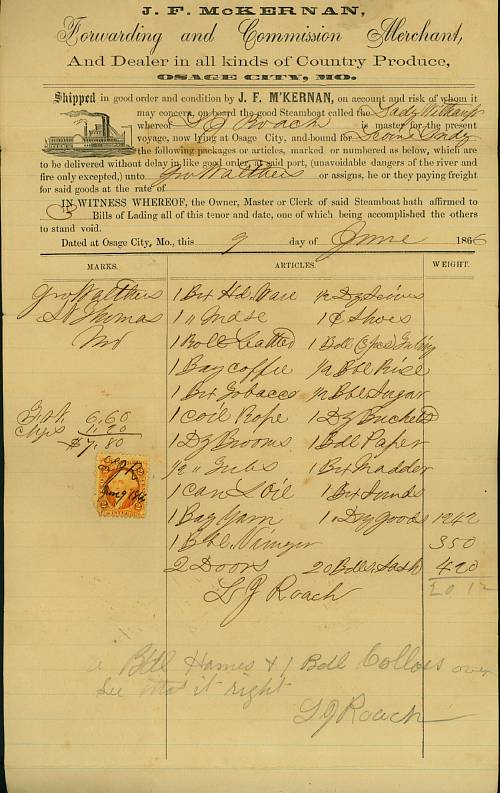 J. F. McKERNAN,
Forwarding and Commission Merchant,
And Dealer in all kinds of Country Produce,
OSAGE CITY, MO.
Shipped in good order and condition by J. F. M'KERNAN, on account and risk of whom it
may concern, on board the good Steamboat called the Lady
whereof L J Roach is master for the present
voyage, now lying at Osage City, and bound for
the following packages or articles, marked or numbered as below, which are
to be delivered without delay in like good order, at said port, (unavoidable dangers of the river and
fire only excepted,) unto Geo Walthers or assigns, he or they paying freight
for said goods at the rate of
IN WITNESS WHEREOF, the Owner, Master or Clerk of said Steamboat hath affirmed to
3 Bills of Lading all of this tenor and date, one of which being accomplished the others
to stand void.
Dated at Osage City, Mo., this 9 day of June 1866
MARKS. ARTICLES. WEIGHT.
Geo Walthers 1 Bx Hd. Ware ½ Dz
St Thomas 1 " 1 C Shoes
Mo 1 Roll 1 Bdl
1 Bag coffie ½ Bbl Rise
1 Bx Tobacco ½ Bbl Sugar
6.60 1 coil Rope 1 Dz Buckets
Chgs 1.20 1 Dz Brooms 1 Bdl Paper
$7.80 ½ " Tubs 1 Bx Madder
1 can L oil 1 Bx
June 9 1866
1 Bag Yarn 1 " Dry Goods 1242
1 Bbl. 350
2 Doors 20 Bdls Sash 420
L J Roach 2012
a Bdl Hames & 1 Bdl Collors over
See that it right
L J Roach